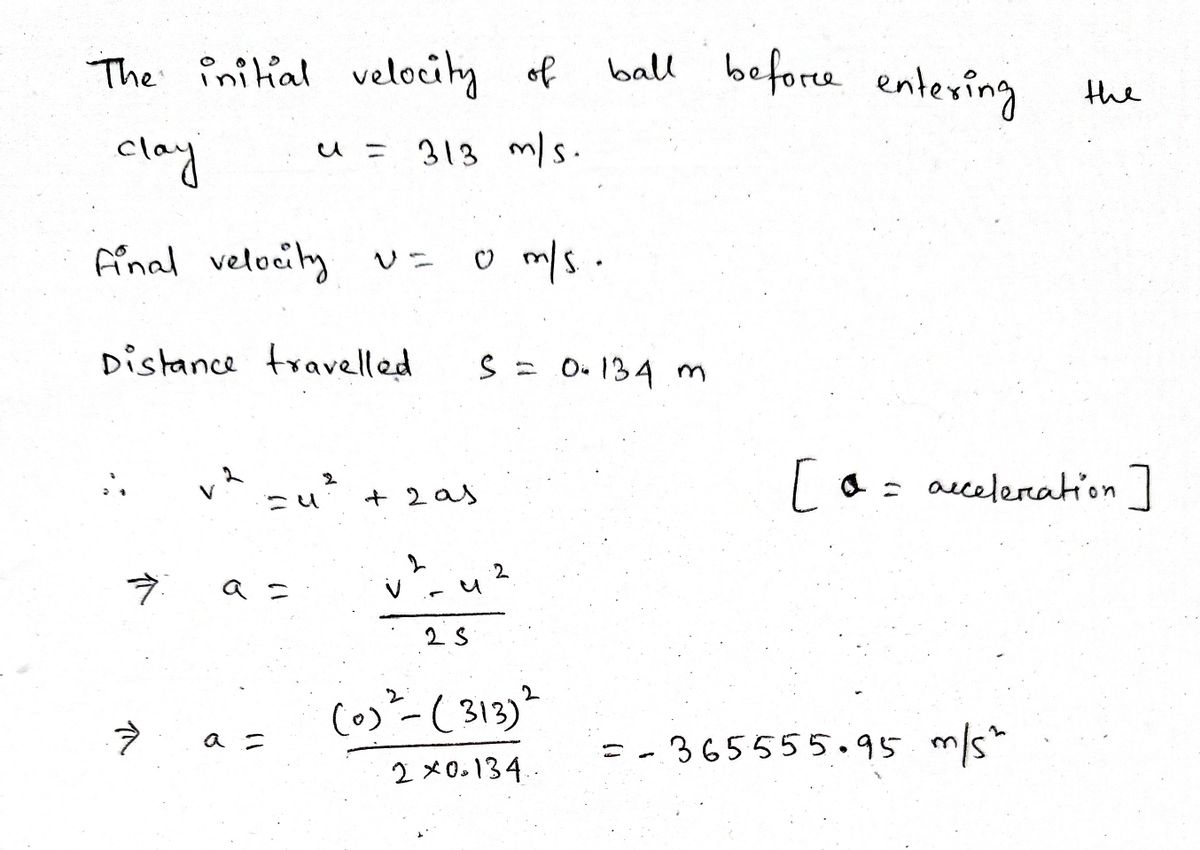 The initial velocity of ball before entering the
clay u = 313 m/s.
final velocity v = 0 m/s.
Distance travelled s = 0.134 m
∴ v² = u² + 2as [a = acceleration]
⇒ a = (v² - u²)/(2s)
⇒ a = ((0)² - (313)²)/(2×0.134) = -365555.95 m/s²